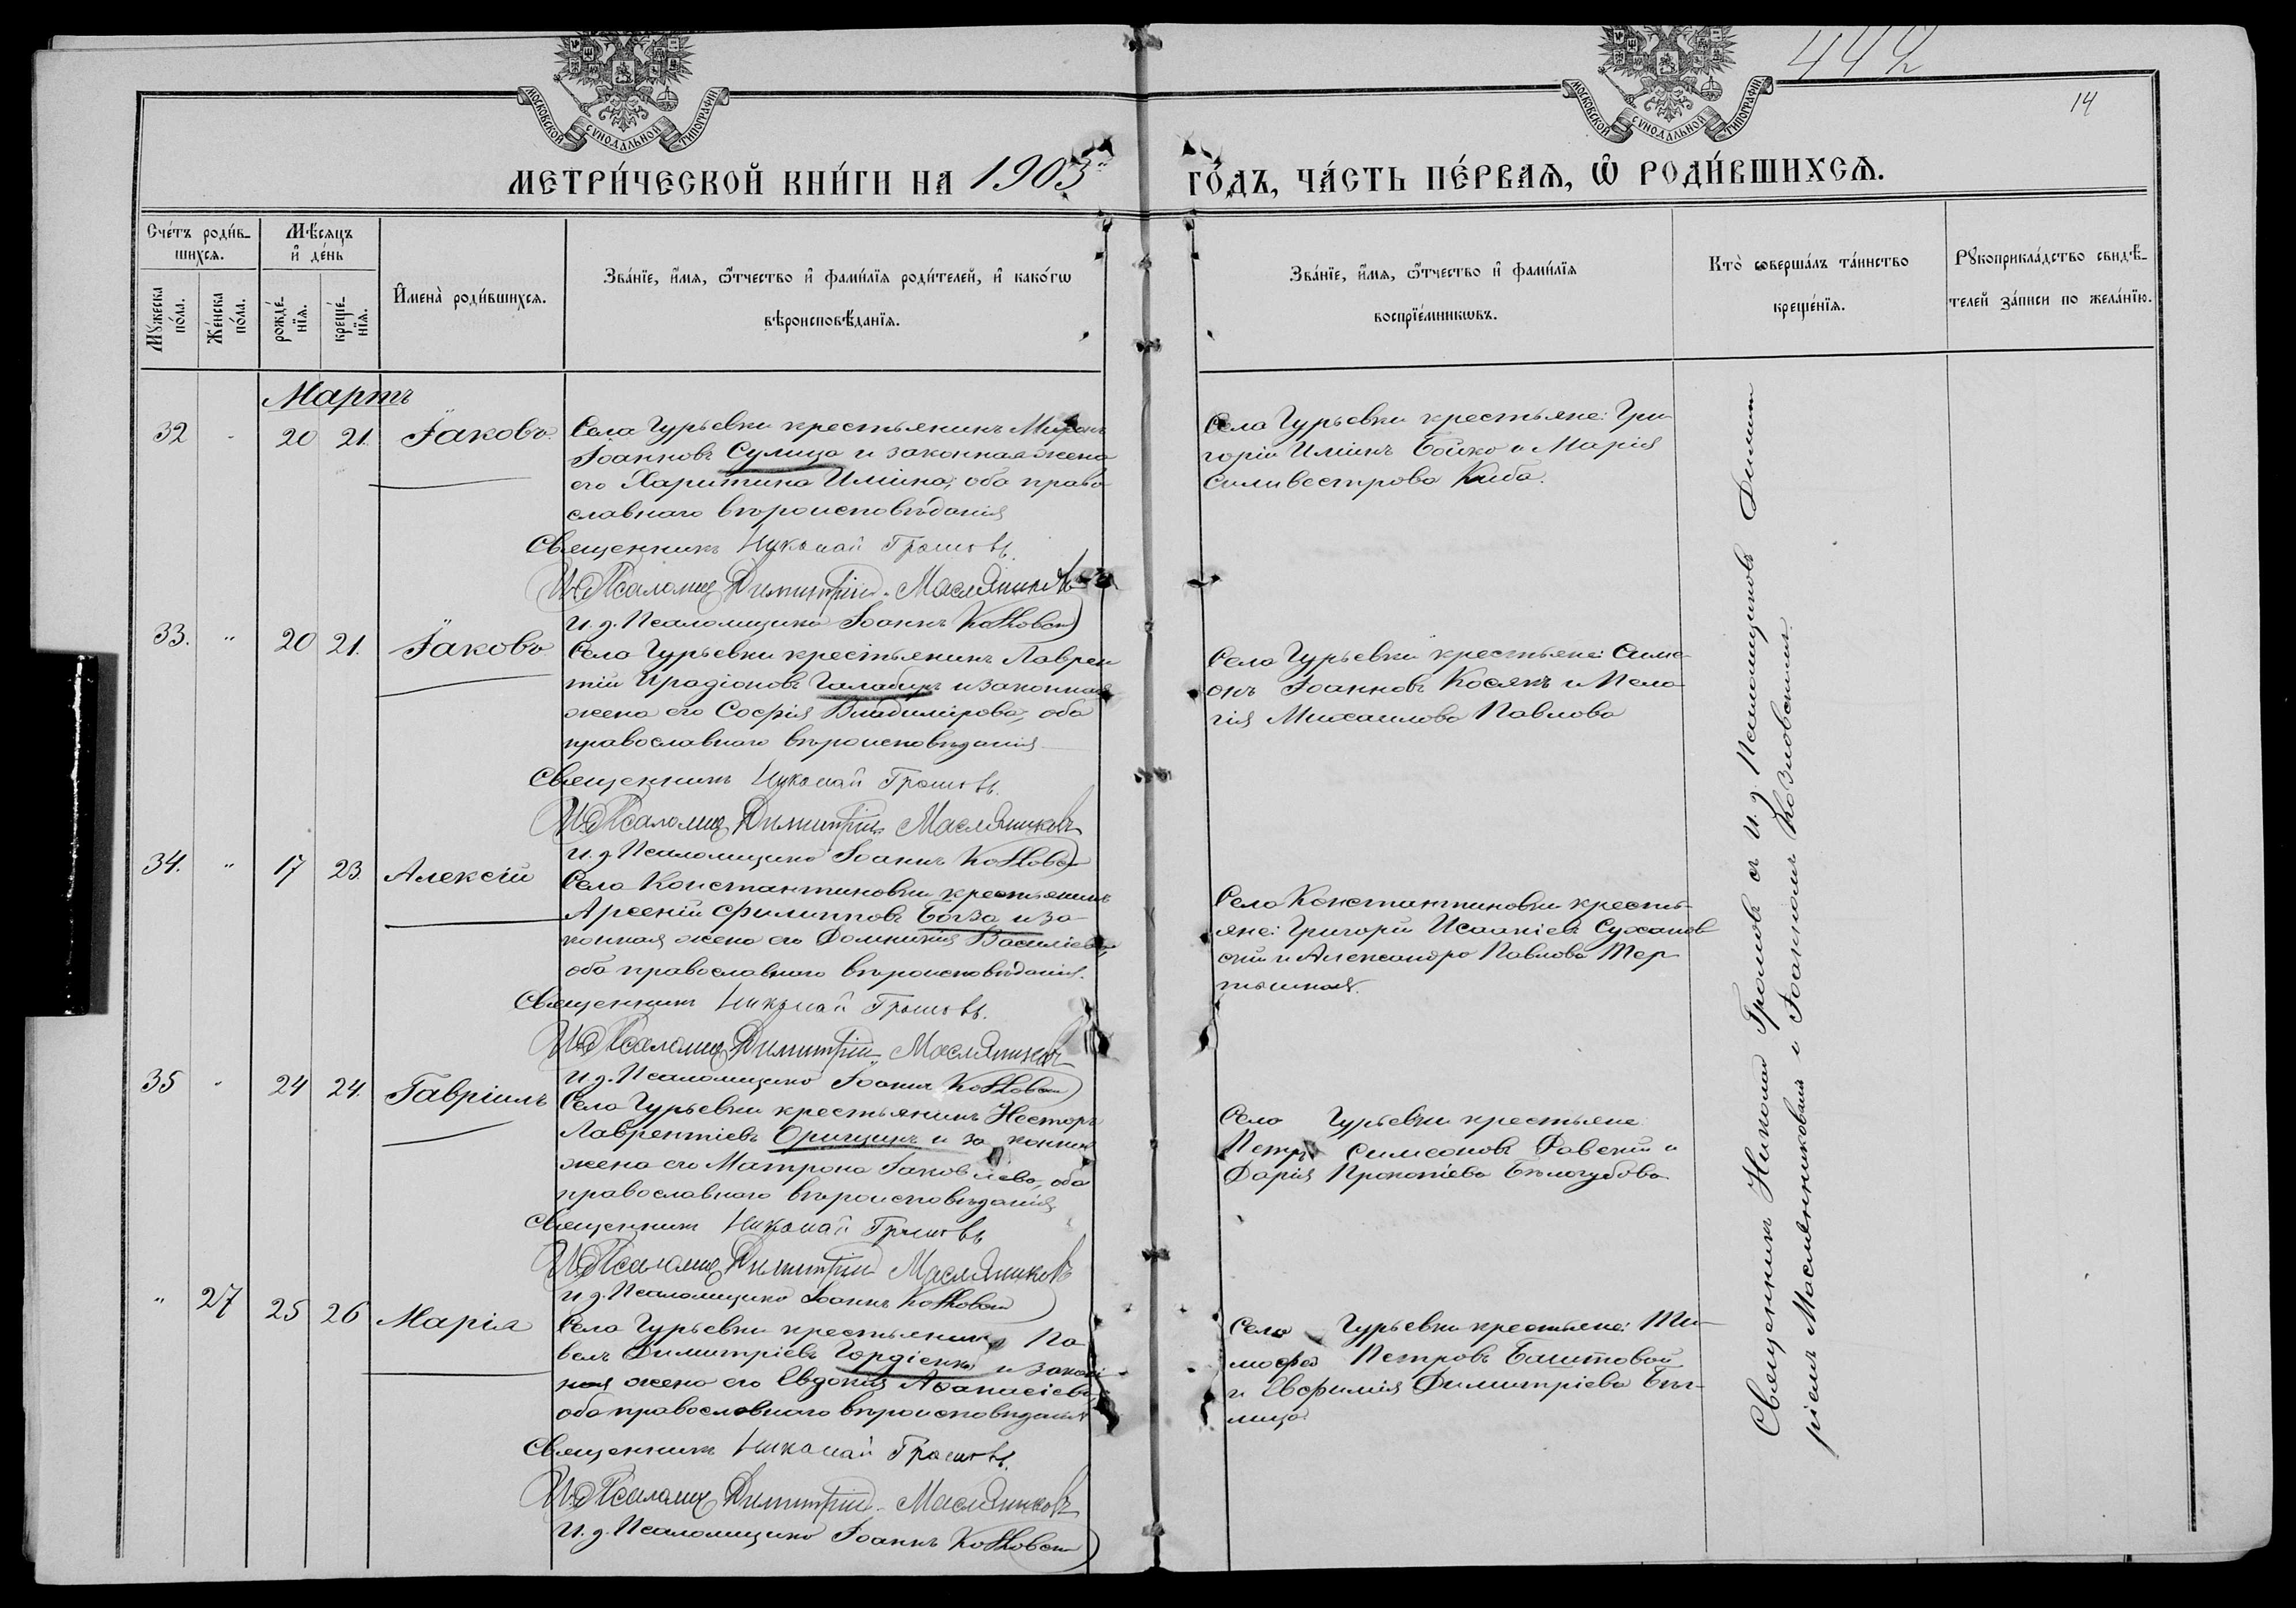 442
14
МОСКОВСКОЙ СѴНОДАЛЬНОЙ ТИПОГРАФІИ
МОСКОВСКОЙ СѴНОДАЛЬНОЙ ТИПОГРАФІИ
МЕТРИ́ЧЕСКОЙ КНИ́ГИ НА 1903й
ГО́ДЪ, ЧА́СТЬ ПЕ́РВАѦ, Ѽ РОДИ́ВШИХСѦ.
Сче́тъ роди́в-
шихсѧ.
Мѣ́сѧцъ
и҆ де́нь
Мꙋ́жеска
по́ла.
Же́нска
по́ла.
рожде́-
нїѧ.
креще́-
нїѧ.
И҆мена̀ роди́вшихсѧ.
Зва́нїе, и҆́мѧ, ѻ҆́тчество и҆ фами́лїѧ роди́телей, и҆ како́гѡ
вѣроисповѣ́данїѧ.
Зва́нїе, и҆́мѧ, ѻ҆́тчество и҆ фами́лїѧ
воспрїе́мникѡвъ.
Кто̀ соверша́лъ та́инство
креще́нїѧ.
Рꙋкоприкла́дство свидѣ́-
телей за́писи по жела́нїю.
Мартъ
32 " 20 21. Іаковъ
Села Гурьевки крестьянинъ Миронъ
Іоанновъ Сулица и законная жена
его Харитина Иліина, оба право
славнаго вѣроисповѣданія
Священникъ Николай Громовъ.
И д Псаломщ Димитрій Маслянниковъ
И. д. Псаломщика Іоаннъ Козловск
Села Гурьевки крестьяне: Гри
горій Иліинъ Бойко и Марія
Силивестрова Киба.
33. " 20 21. Іаковъ
Села Гурьевки крестьянинъ Лаврен
тій Иродіоновъ Галабурь и законная
жена его Софія Владимірова, оба
православнаго вѣроисповѣданія
Священникъ Николай Громовъ.
И д Псаломщ Димитрій Маслянниковъ
И. д. Псаломщика Іоаннъ Козловск
Села Гурьевки крестьяне: Симе
онъ Іоанновъ Косякъ и Пела
гія Михаилова Павлова
34. " 17 23. Алексій
Села Константиновки крестьянинъ
Арсеній Филипповъ Богза и за
конная жена его Домникія Василіева,
оба православнаго вѣроисповѣданія.
Священникъ Николай Громовъ.
И д Псаломщ Димитрій Маслянниковъ
И. д. Псаломщика Іоаннъ Козловск
Села Константиновки кресть-
яне: Григорій Исааніевъ Суханов
скій и Александра Павлова Тер
тышная.
35 " 24 24. Гавріилъ
Села Гурьевки крестьянинъ Несторъ
Лаврентіевъ Орищинъ и за конная
жена его Матрона Іаковлева, оба
православнаго вѣроисповѣданія
Священникъ Николай Громовъ
И д Псаломщ Димитрій Маслянниковъ
И. д. Псаломщика Іоаннъ Козловск
Села Гурьевки крестьяне
Петръ Симеоновъ Равскій и
Дарія Прокопіева Бѣлогубова
" 27 25 26 Марія
Села Гурьевки крестьянинъ Па
велъ Димитріевъ Гордіенко и закон
ная жена его Евдокія Аѳанасіева,
оба православнаго вѣроисповѣданія
Священникъ Николай Громовъ.
И д Псаломщ Димитрій Маслянниковъ
И. д. Псаломщика Іоаннъ Козловск
Села Гурьевки крестьяне: Ти-
мофей Петровъ Баштовой
и Евфимія Димитріева Бѣг-
лица
Священникъ Николай Громовъ съ и. д. Псаломщиковъ Димит
ріемъ Маслянниковымъ и Іоанномъ Козловскимъ.